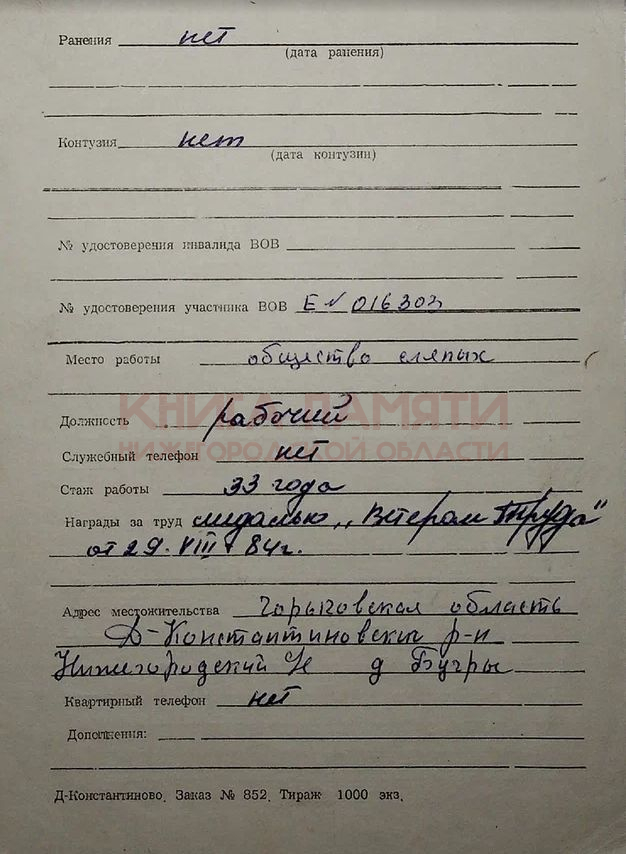 Ранения нет
(дата ранения)
Контузия нет
(дата контузии)
№ удостоверения инвалида ВОВ
№ удостоверения участника ВОВ Е № 016303
Место работы общество слепых
КНИГА ПАМЯТИ
Должность рабочий
НИЖЕГОРОДСКОЙ ОБЛАСТИ
Служебный телефон нет
Стаж работы 33 года
Награды за труд медалью „Ветеран Труда"
от 29. VIII 84г.
Адрес местожительства Горьковская область
Д-Константиновский р-н
Нижегородский с/с д Бугры
Квартирный телефон нет
Дополнения:
Д-Константиново. Заказ № 852. Тираж 1000 экз.